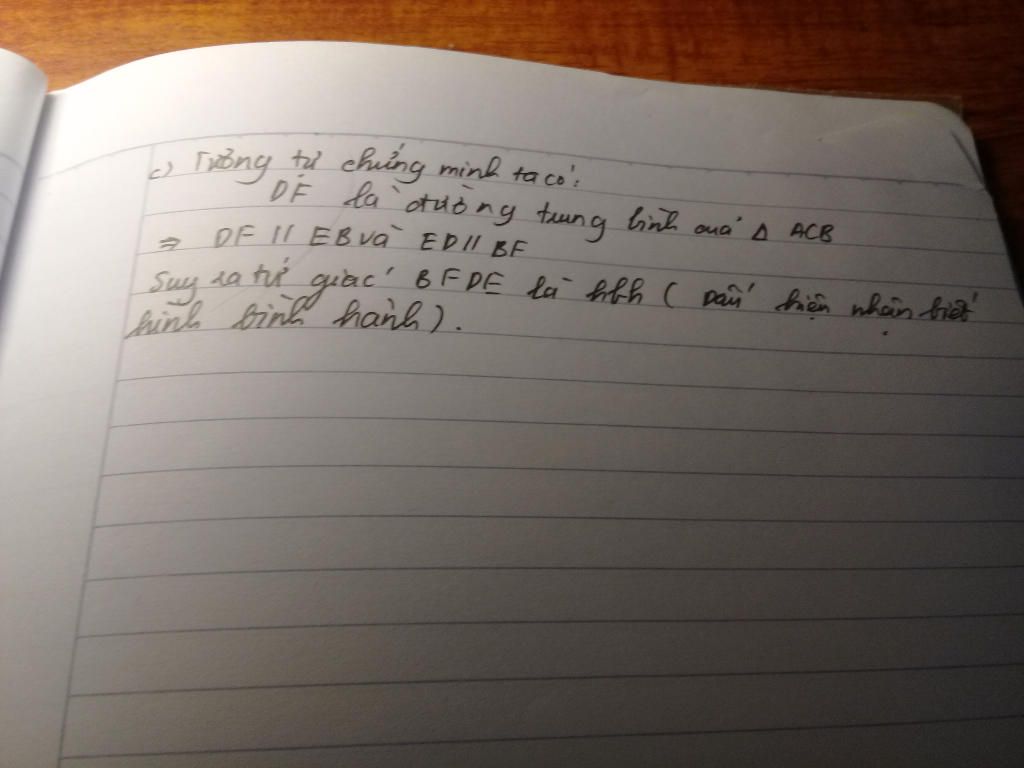 c) Tương tự chứng minh ta có:
DF là đường trung bình của Δ ACB
⇒ DF // EB và ED // BF
Suy ra tứ giác BFDE là hbh ( Dấu hiện nhận biết
hình bình hành).